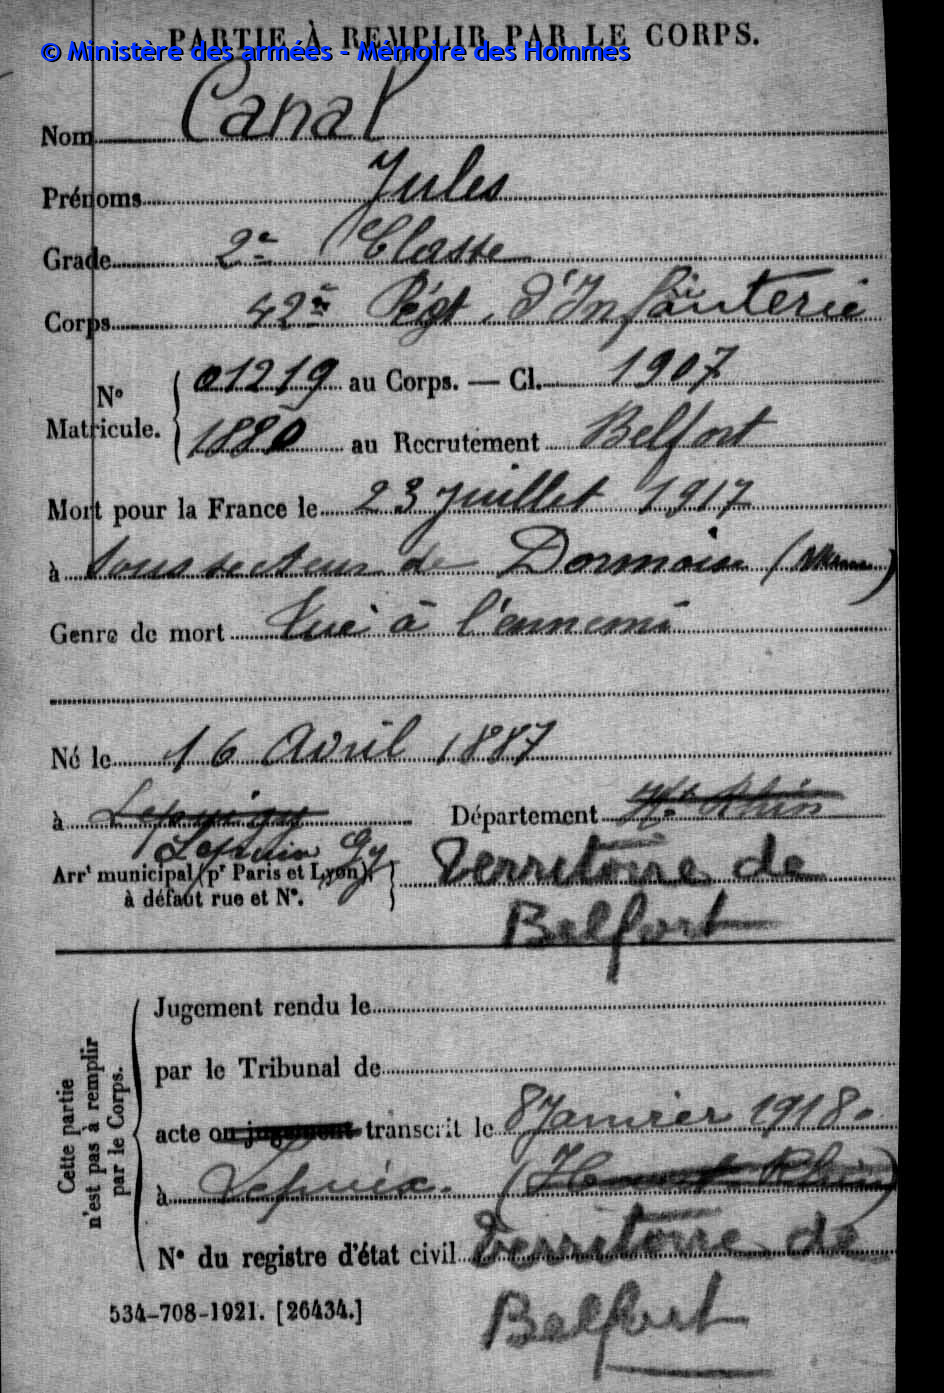 PARTIE À REMPLIR PAR LE CORPS.
© Ministère des armées - Mémoire des Hommes
Nom Canal
Prénoms Jules
Grade 2e Classe
Corps 42e Régt d'Infanterie
N° Matricule. 01219 au Corps. — Cl. 1907
1880 au Recrutement Belfort
Mort pour la France le 23 juillet 1917
à Sous secteur de Dormoise (Marne)
Genre de mort Tué à l'ennemi
Né le 16 Avril 1887
à Lepuigy Département Ht Rhin
Lepuix Gy
Arrt municipal (pr Paris et Lyon), Territoire de
à défaut rue et N°. Belfort
Cette partie n'est pas à remplir par le Corps.
Jugement rendu le
par le Tribunal de
acte ou jugement transcrit le 8 Janvier 1918.
à Lepuix. (Haut Rhin)
N° du registre d'état civil Territoire de
534-708-1921. [26434.] Belfort